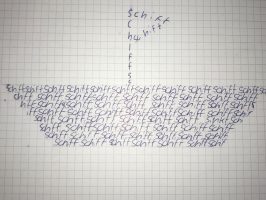 Schiff
c
h hiff
i
f
f
S
Schiff Schiff Schiff Schiff Schiff Schiff Schiff Schiff Schiff
chiff Schiff Schiff Schiff Schiff Schiff Schiff Schiff
hiff Schiff Schiff Schiff Schiff Schiff Schiff
iff Schiff Schiff Schiff Schiff Schiff Sch
Schiff Schiff Schiff Schiff Schiff Schiff
Schiff Schiff Schiff Schiff Schiff Schiff
Schiff Schiff Schiff Schiff Schiff Schiff